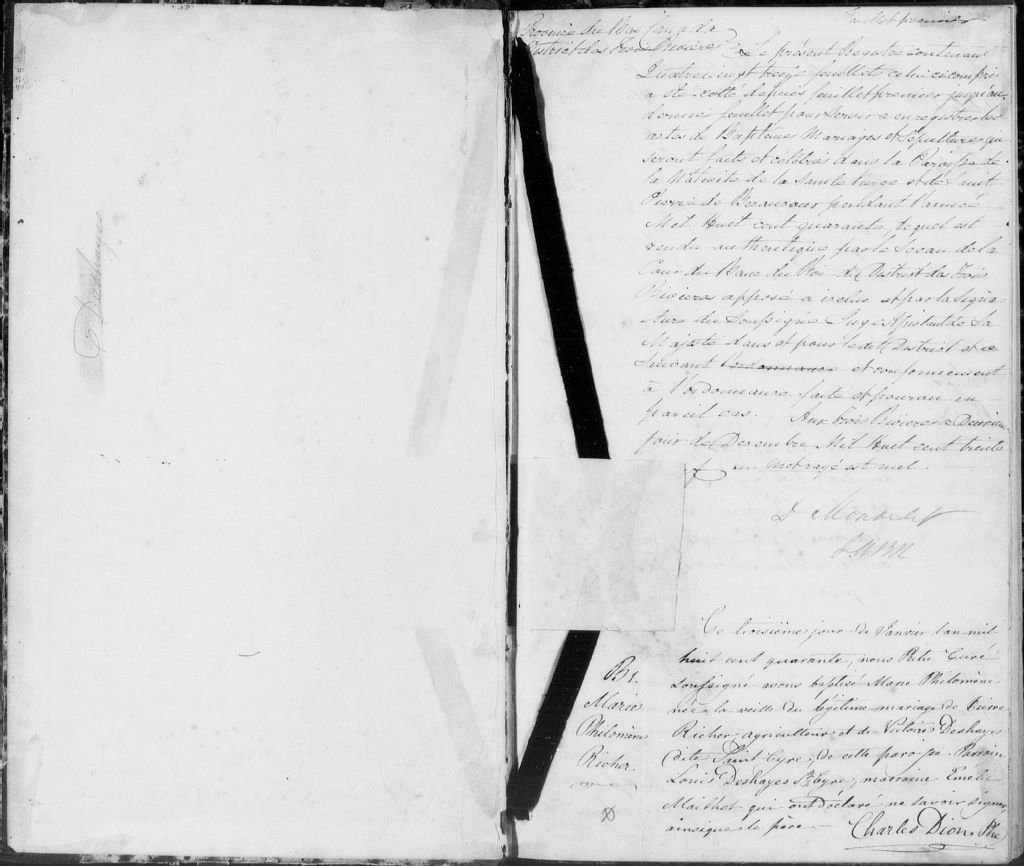 Feuillet premier
Province du Bas Canada
District des Trois Rivières
Le présent Registre contenant
Quatrevingt treize feuillets celui ci compris
a été cotté depuis feuillet premier jusqu'au
dernier feuillet pour servir a enregistrer les
actes de Baptêmes Mariages et Sépultures qui
seront faits et célébrés dans la Paroisse de
la Nativité de la Sainte Vierge et de Saint
Pierre de Becancour pendant l'année
Mil Huit cent quarante, lequel est
rendu authentique par le Sceau de la
Cour du Banc du Roi du District des Trois
Rivières apposé à icelui et par la Signa-
ture du Soussigné Juge Assistant de Sa
Majesté dans et pour le dit District et ce
Suivant l'ordonnance et conformément
à l'ordonnance faite et pourvu en
pareil cas. Aux Trois Rivières le
jour de Decembre Mil Huit cent trente
un mot rayé est nul.
D Mondelet
Ce troisième jour de Janvier l'an mil
huit cent quarante, nous Ptre Curé
soussigné avons baptisé Marie Philomène
née la veille du légitime mariage de Pierre
Richer agriculteur et de Victoire Deshayes
dite Saint Cyre, de cette paroisse. Parrain
Louis Deshayes St Cyre, marraine Emélie
Mailhot qui ont déclaré ne savoir signer,
ainsi que le père.
Charles Dion, Ptre
B1.
Marie
Philomène
Richer